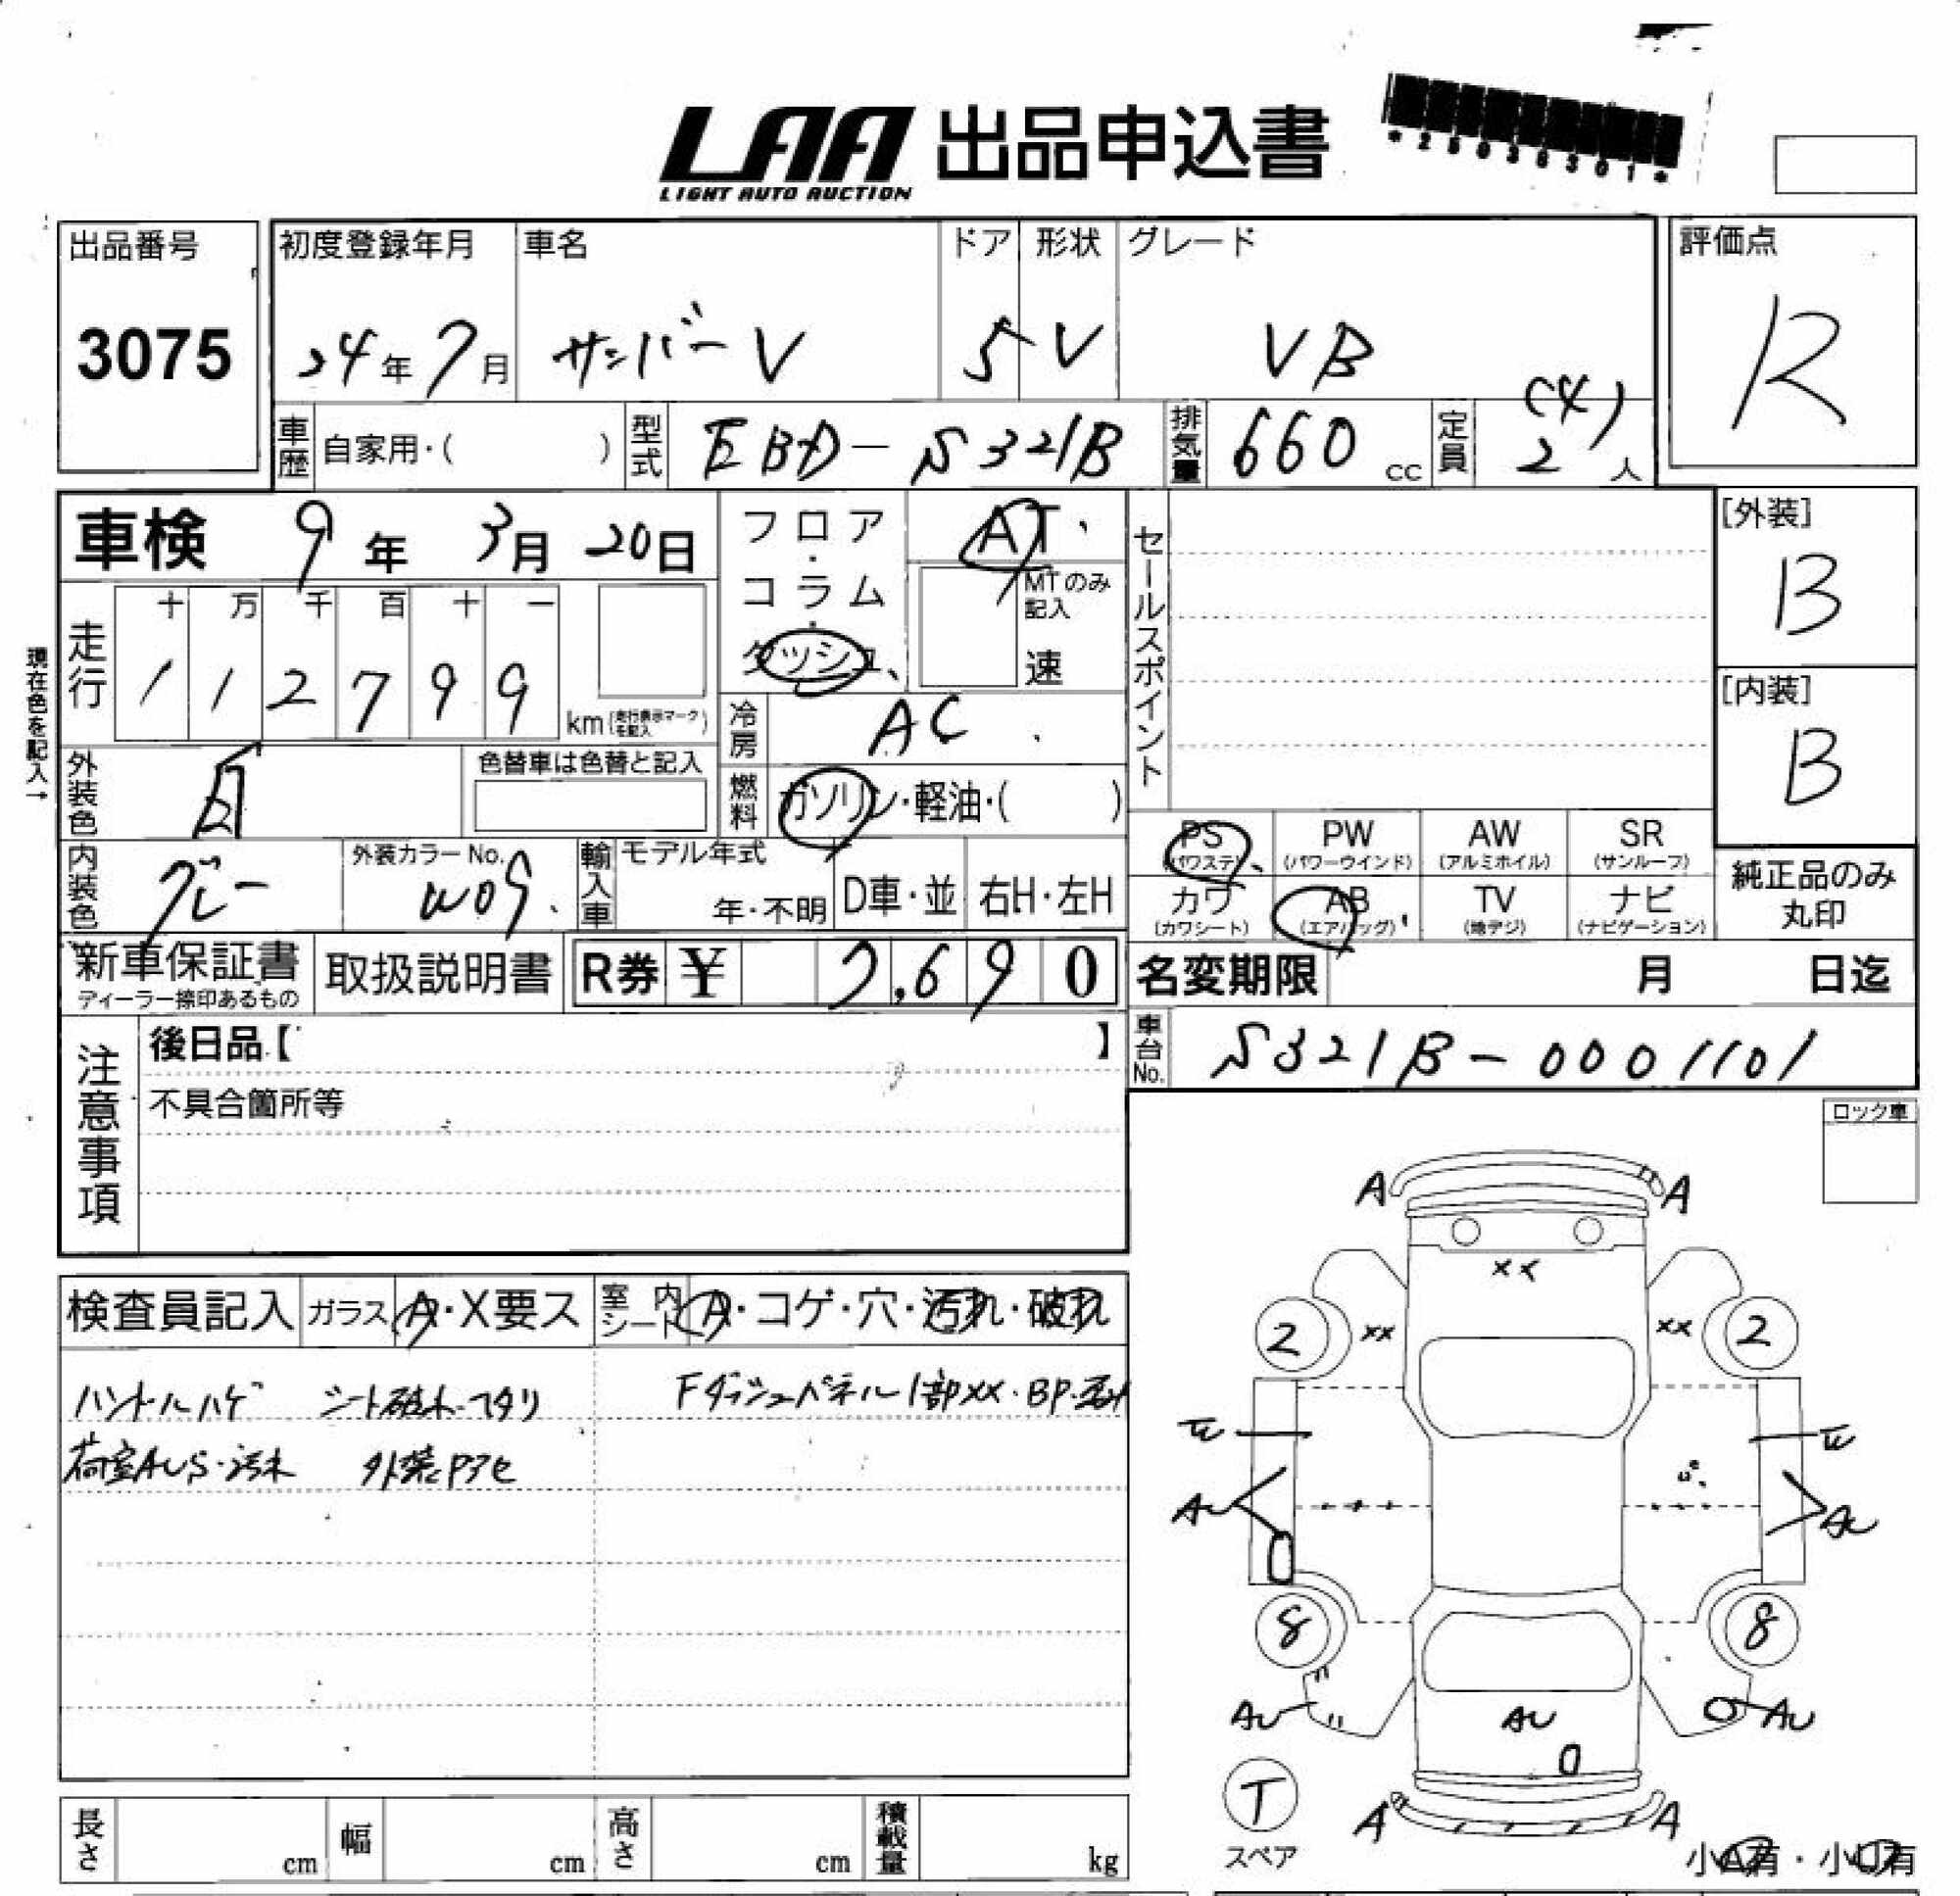 LAA 出品申込書
LIGHT AUTO AUCTION
*25036301*
出品番号
3075
初度登録年月
24年7月
車名
サンバーV
ドア
5
形状
V
グレード
VB
評価点
R
車歴
自家用・( )
型式
EBD-S321B
排気量
660cc
定員
(4)
2人
車検 9年 3月 20日
走行
十 万 千 百 十 一
1 1 2 7 9 9
km(走行表示マークを記入)
現在色を記入→
フロア・コラム・ダッシュ
AT
MTのみ記入
速
冷房
AC
燃料
ガソリン・軽油・( )
セールスポイント
[外装]
B
[内装]
B
外装色
白
色替車は色替と記入
内装色
グレー
外装カラーNo.
W09
輸入車
モデル年式
年・不明
D車・並
右H・左H
PS
(パワステ)
PW
(パワーウインド)
AW
(アルミホイル)
SR
(サンルーフ)
カワ
(カワシート)
AB
(エアバッグ)
TV
(地デジ)
ナビ
(ナビゲーション)
純正品のみ
丸印
新車保証書
ディーラー捺印あるもの
取扱説明書
R券 ¥ 7,690
名変期限 月 日迄
車台No.
S321B-0001101
注意事項
後日品【 】
不具合箇所等
ロック車
検査員記入
ガラス
A・X要ス
室内シート
A・コゲ・穴・汚れ・破れ
ハンドルハゲ シート破れ・ヘタリ
Fダッシュパネル1部XX・BP・歪み
荷室AUS・汚れ 外装色アセ
A A
XX
2 XX XX 2
E E
AU AU
8 8
AU AU AU
T
スペア
A A
小A有・小U有
長さ cm
幅 cm
高さ cm
積載量 kg